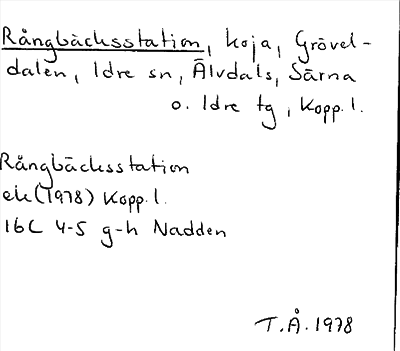 Rångbäcksstation, koja, Grövel-
dalen, Idre sn, Älvdals, Särna
o. Idre tg, Kopp. l.
Rångbäcksstation
ek (1978) Kopp. l.
16C 4-5 g-h Nadden
T.Å. 1978